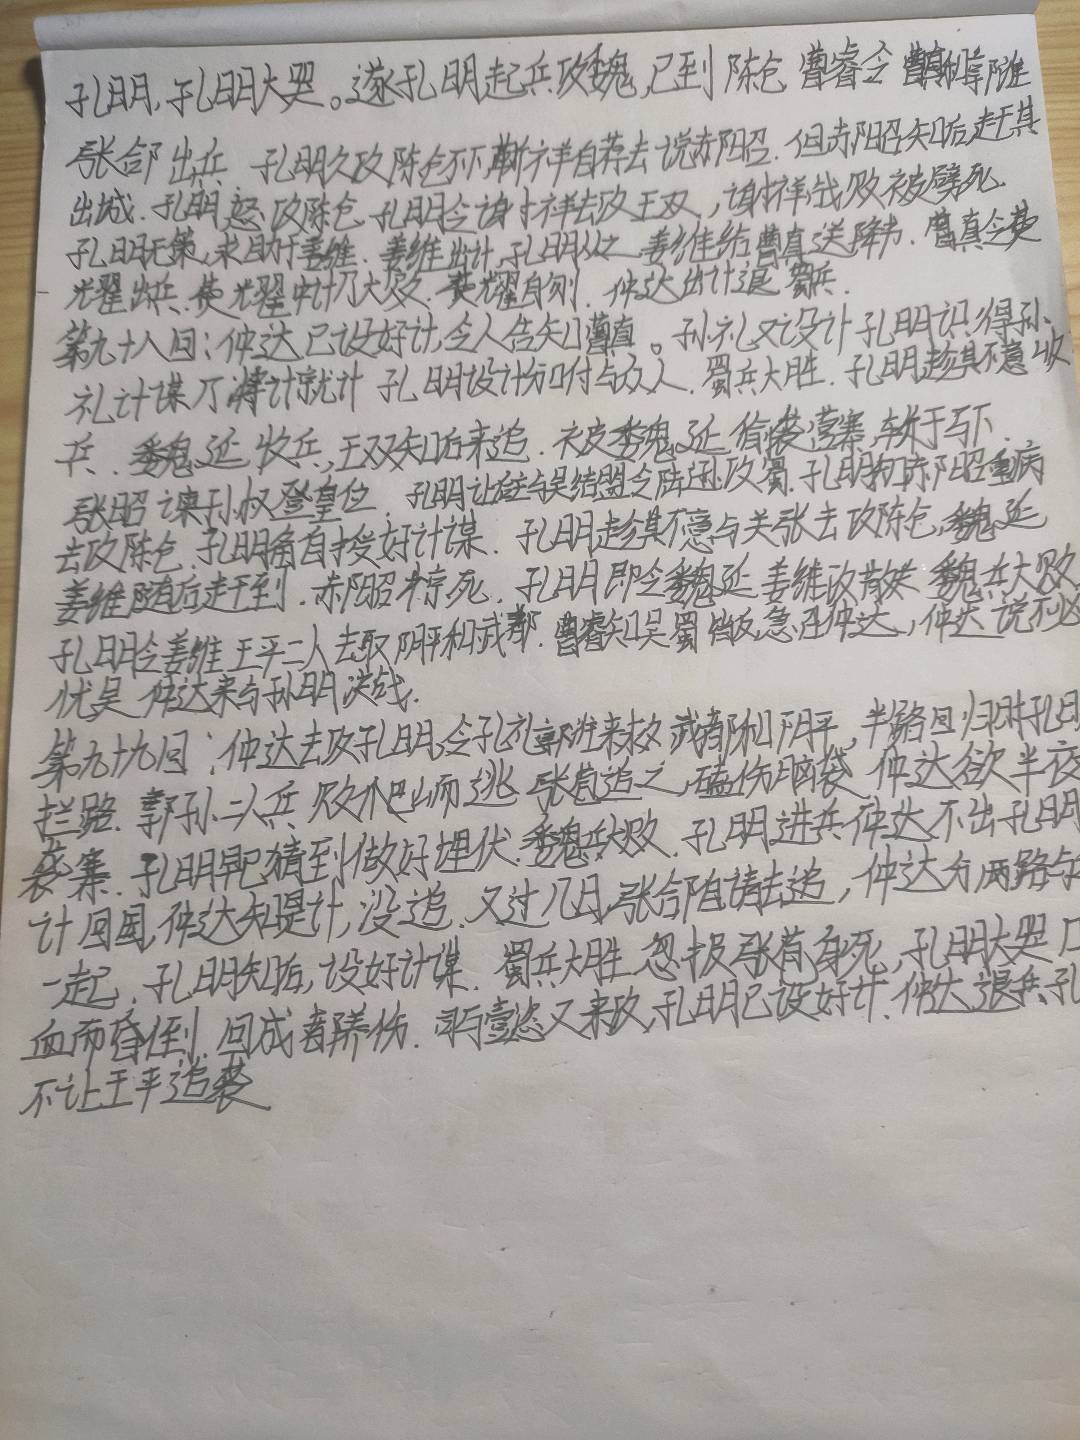 孔明,孔明大哭。遂孔明起兵攻魏,已到陈仓 曹睿令曹真和郭淮
张郃出兵 孔明久攻陈仓不下,靳祥自荐去说赤阳昭.但赤阳昭知后赶其
出城.孔明怒攻陈仓 孔明令谢祥去攻王双,谢祥战败被劈死.
孔明无策,求助于姜维.姜维出计,孔明从之 姜维给曹真送降书.曹真令费
光耀出兵.费光耀中计乃大败.费耀自刎.仲达出计退蜀兵.
第九十八回:仲达已设好计,令人告知曹真。孙礼又设计 孔明识得孙
礼计谋了将计就计 孔明设计分付与众人.蜀兵大胜.孔明趁其不意收
兵.魏延收兵,王双知后来追.被魏延偷袭营寨,斩于马下.
张昭谏孙权登皇位.孔明让 与吴结盟令陆逊攻蜀.孔明 赤阳昭重病
去攻陈仓.孔明自授好计谋.孔明趁其不意与关张去攻陈仓,魏延
姜维随后赶到.赤阳昭惊死.孔明即令魏延姜维攻散关 魏兵大败
孔明令姜维王平二人去取阴平和武都.曹睿知吴蜀 反,急召仲达,仲达说不必
忧吴 仲达来与孙明决战.
第九十九回:仲达去攻孔明,令孔礼郭淮来救武都和阴平,半路回归时孔明
拦路.郭孙二人兵败爬山而逃 张苞追之,磕伤脑袋.仲达欲半夜
袭寨.孔明早已猜到做好埋伏.魏兵大败.孔明进兵仲达不出孔明
计回国,仲达知是计,没追.又过几日,张郃自请去追,仲达分两路与
一起.孔明知后,设好计谋.蜀兵大胜.忽报张苞身死,孔明大哭口
血而昏倒.回成都养伤.司马懿又来攻,孔明已设好计.仲达退兵,孔
不让王平追袭